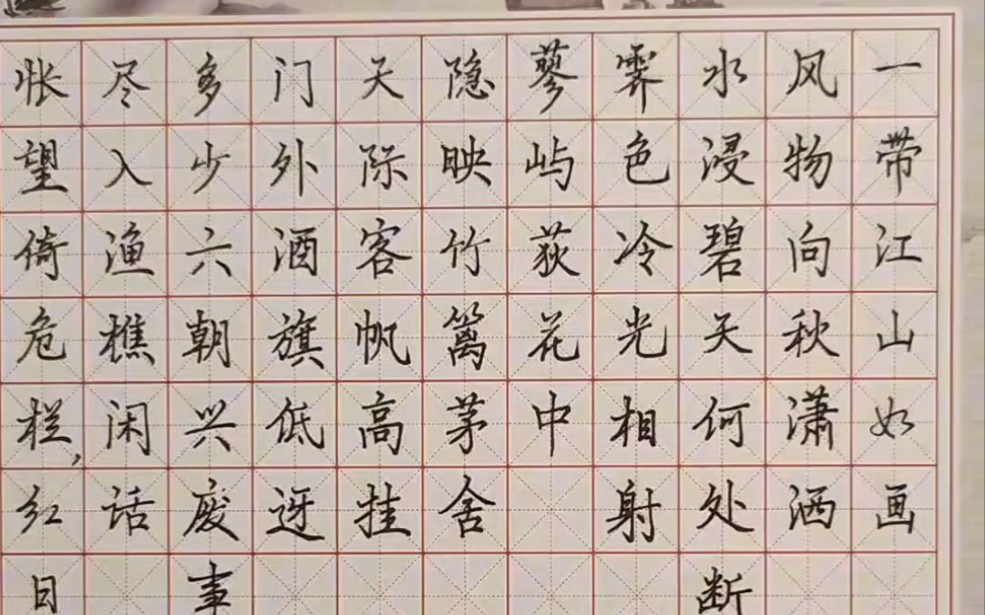 一带江山如画
风物向秋潇洒
水浸碧天何处断
霁色冷光相射
蓼屿荻花中
隐映竹篱茅舍
天际客帆高挂
门外酒旗低迓
多少六朝兴废事
尽入渔樵闲话
怅望倚危栏,红日